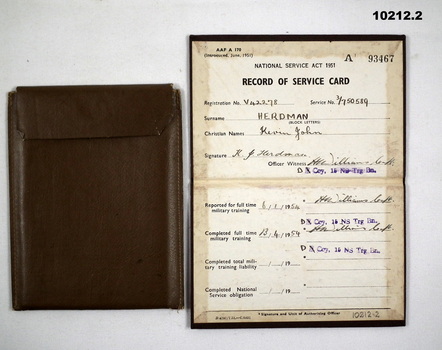 10212.2
AAF A 178
(Introduced, June, 1951)
NATIONAL SERVICE ACT 1951
A 93467
RECORD OF SERVICE CARD
Registration No. V422278 Service No. 3/750589
Surname HERDMAN
(BLOCK LETTERS)
Christian Names Kevin John
Signature K. J. Herdman
Officer Witness HWilliams Capt.
D Coy, 15 NS Trg Bn.
Reported for full time military training 6/1/1954 * HWilliams Capt.
D Coy, 15 NS Trg Bn.
Completed full time military training 13/4/1954 * HWilliams Capt.
D Coy, 15 NS Trg Bn.
Completed total military training liability / /19 *
Completed National Service obligation / /19 *
* Signature and Unit of Authorising Officer
10212.2